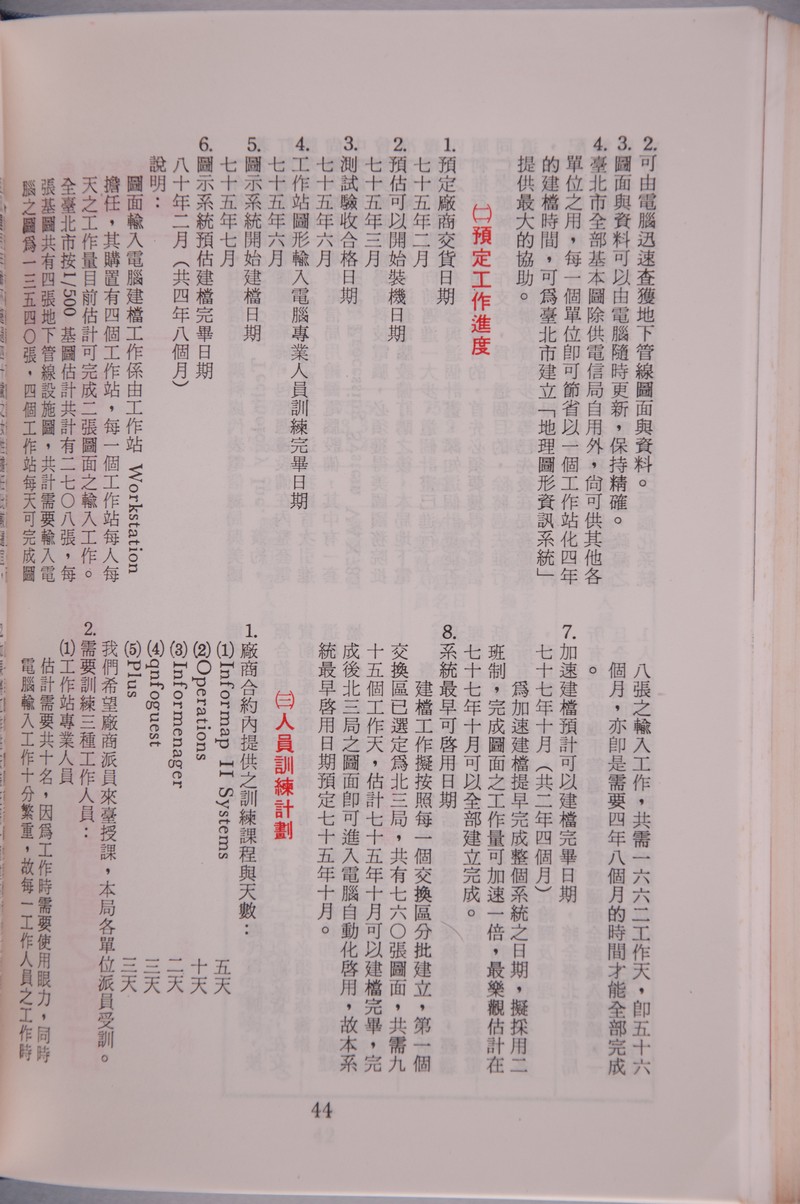 2.可由電腦迅速查獲地下管線圖面與資料。
3.圖面與資料可以由電腦隨時更新，保持精確。
4.臺北市全部基本圖除供電信局自用外，尙可供其他各
單位之用，每一個單位卽可節省以一個工作站化四年
的建檔時間，可爲臺北市建立「地理圖形資訊系統」
提供最大的協助。
㈡預定工作進度
1.預定廠商交貨日期
七十五年二月
2.預估可以開始裝機日期
七十五年三月
3.測試驗收合格日期
七十五年六月
4.工作站圖形輸入電腦專業人員訓練完畢日期
七十五年六月
5.圖示系統開始建檔日期
七十五年七月
6.圖示系統預估建檔完畢日期
八十年二月（共四年八個月）
說明：
圖面輸入電腦建檔工作係由工作站 Workstation
擔任，其購置有四個工作站，每一個工作站每人每
天之工作量目前估計可完成二張圖面之輸入工作。
全臺北市按1/500 基圖估計共計有二七〇八張，每
張基圖共有四張地下管線設施圖，共計需要輸入電
腦之圖爲一三五四〇張，四個工作站每天可完成圖
八張之輸入工作，共需一六六二工作天，卽五十六
個月，亦卽是需要四年八個月的時間才能全部完成
。
7.加速建檔預計可以建檔完畢日期
七十七年十月（共二年四個月）
爲加速建檔提早完成整個系統之日期，擬採用二
班制，完成圖面之工作量可加速一倍，最樂觀估計在
七十七年十月可以全部建立完成。
8.系統最早可啓用日期
建檔工作擬按照每一個交換區分批建立，第一個
交換區已選定爲北三局，共有七六〇張圖面，共需九
十五個工作天，估計七十五年十月可以建檔完畢，完
成後北三局之圖面卽可進入電腦自動化啓用，故本系
統最早啓用日期預定七十五年十月。
㈢人員訓練計劃
1.廠商合約內提供之訓練課程與天數：
⑴Informap II Systems 五天
⑵Operations 十天
⑶Informenager 二天
⑷qnfoguest 三天
⑸Plus 三天
我們希望廠商派員來臺授課，本局各單位派員受訓。
2.需要訓練三種工作人員：
⑴工作站專業人員
估計需要共十名，因爲工作時需要使用眼力，同時
電腦輸入工作十分繁重，故每一工作人員之工作時
44